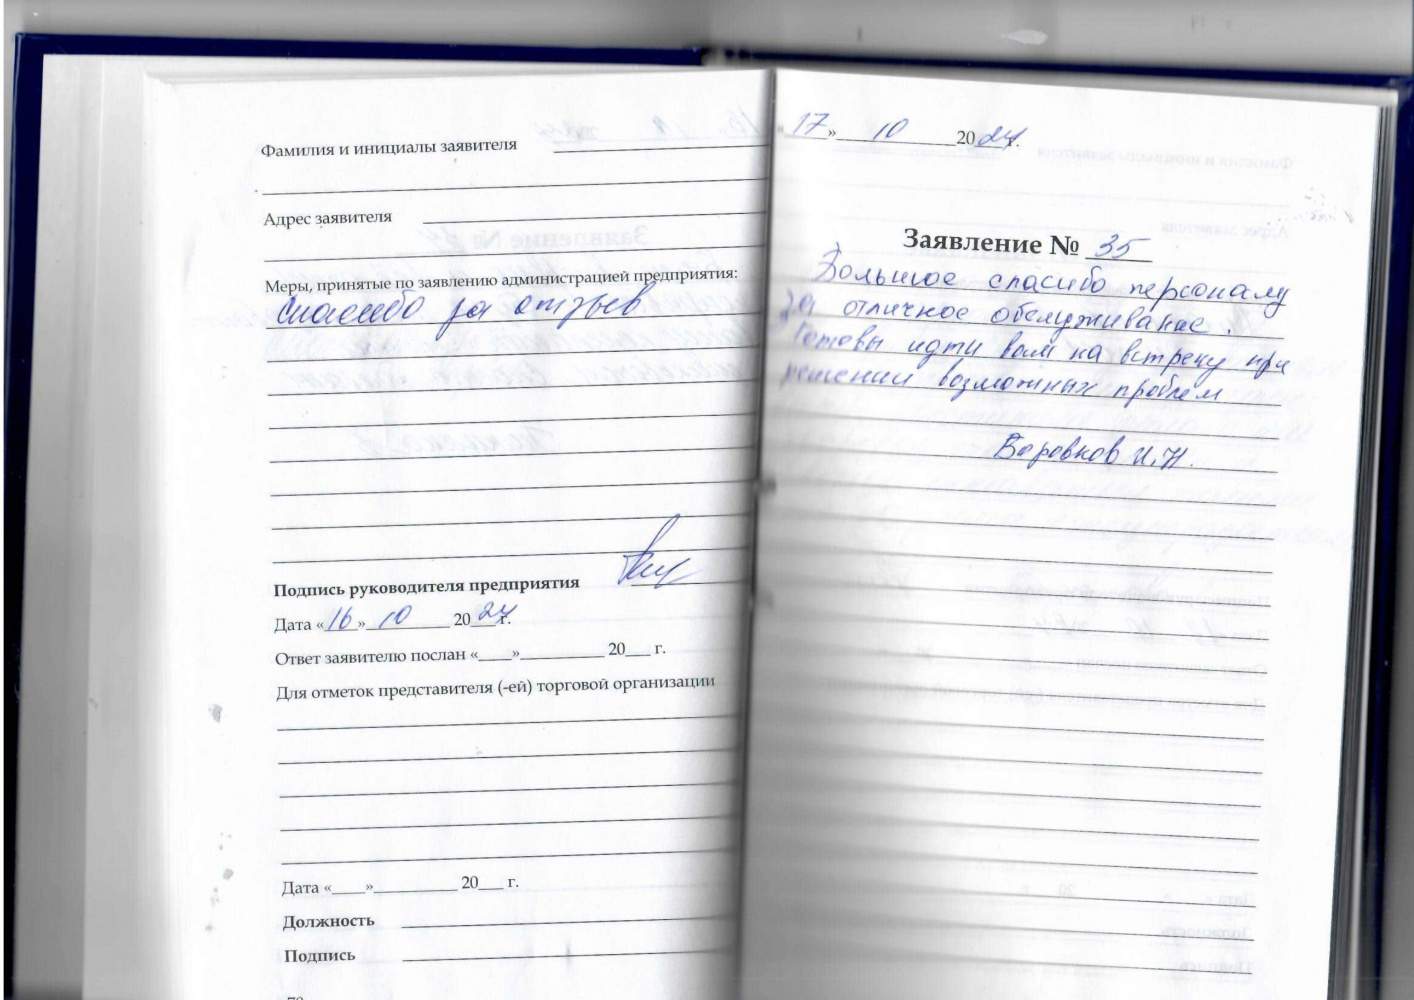 Фамилия и инициалы заявителя
Адрес заявителя
Меры, принятые по заявлению администрацией предприятия:
Спасибо за отзыв
Подпись руководителя предприятия
Дата «16» 10 2024 г.
Ответ заявителю послан «____»__________ 20___ г.
Для отметок представителя (-ей) торговой организации
Дата «____»__________ 20___ г.
Должность
Подпись
«17» 10 2024 г.
Заявление № 35
Большое спасибо персоналу
за отличное обслуживание.
Готовы идти вам на встречу при
решении возможных проблем
Боровков И.Н.